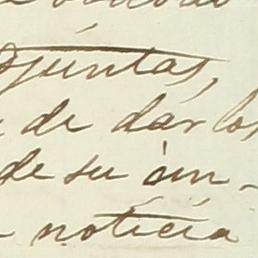 djuntas,
de dar los
de su im-
noticia